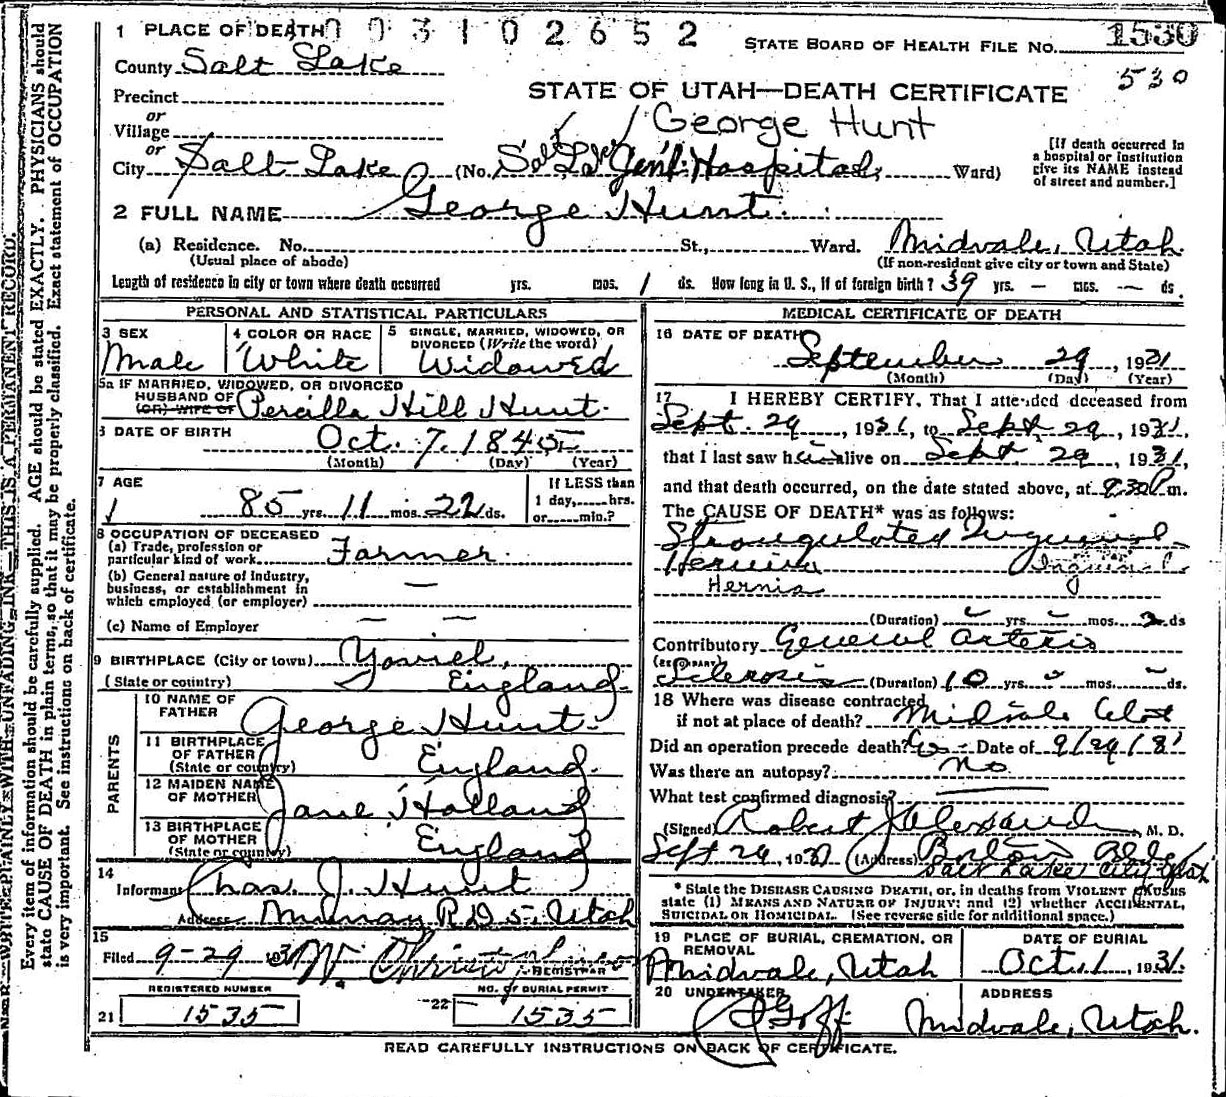 1 PLACE OF DEATH 003102652
STATE BOARD OF HEALTH FILE NO. 1530
530
County Salt Lake
STATE OF UTAH—DEATH CERTIFICATE
Precinct
or
Village
George Hunt
or
City Salt Lake (No. Salt Lake Gen'l. Hospital, Ward)
[If death occurred in
a hospital or institution
give its NAME instead
of street and number.]
2 FULL NAME George Hunt.
(a) Residence. No. St., Ward. Midvale, Utah.
(Usual place of abode) (If non-resident give city or town and State)
Length of residence in city or town where death occurred yrs. mos. 1 ds. How long in U. S., if of foreign birth? 39 yrs. — mos. — ds.
PERSONAL AND STATISTICAL PARTICULARS
3 SEX 4 COLOR OR RACE 5 SINGLE, MARRIED, WIDOWED, OR
DIVORCED (Write the word)
Male White Widowed
5a IF MARRIED, WIDOWED, OR DIVORCED
HUSBAND OF
(OR) WIFE OF Percilla Hill Hunt.
6 DATE OF BIRTH Oct. 7, 1845
(Month) (Day) (Year)
7 AGE If LESS than
85 yrs. 11 mos. 22 ds. 1 day, hrs.
or min.?
8 OCCUPATION OF DECEASED
(a) Trade, profession or
particular kind of work Farmer.
(b) General nature of industry,
business, or establishment in
which employed (or employer)
(c) Name of Employer
9 BIRTHPLACE (City or town)
(State or country) England.
PARENTS
10 NAME OF
FATHER George Hunt.
11 BIRTHPLACE
OF FATHER
(State or country) England.
12 MAIDEN NAME
OF MOTHER Jane Holland
13 BIRTHPLACE
OF MOTHER
(State or country) England
14
Informant Chas. J. Hunt
Address Murray R.D. 5, Utah
15
Filed 9-29 193 REGISTRAR
REGISTERED NUMBER NO. OF BURIAL PERMIT
21 1535 22 1535
MEDICAL CERTIFICATE OF DEATH
16 DATE OF DEATH
September 29, 1931
(Month) (Day) (Year)
17 I HEREBY CERTIFY, That I attended deceased from
Sept. 29, 1931, to Sept. 29, 1931,
that I last saw him alive on Sept. 29, 1931,
and that death occurred, on the date stated above, at 8:30 P m.
The CAUSE OF DEATH* was as follows:
Strangulated Inguinal
Hernia Inguinal
Hernia
(Duration) yrs. mos. 2 ds
Contributory General Arterio
Sclerosis (Duration) 10 yrs. mos. ds.
18 Where was disease contracted
if not at place of death? Midvale Utah
Did an operation precede death? Yes Date of 9/29/31
Was there an autopsy? No
What test confirmed diagnosis?
(Signed) Robert Alexander, M. D.
Sept 29, 1931 (Address) Boston Bldg
Salt Lake City Utah
* State the DISEASE CAUSING DEATH, or, in deaths from VIOLENT CAUSES
state (1) MEANS AND NATURE OF INJURY; and (2) whether ACCIDENTAL,
SUICIDAL OR HOMICIDAL. (See reverse side for additional space.)
19 PLACE OF BURIAL, CREMATION, OR
REMOVAL DATE OF BURIAL
Midvale, Utah Oct. 1, 1931.
20 UNDERTAKER ADDRESS
Goff Midvale, Utah.
READ CAREFULLY INSTRUCTIONS ON BACK OF CERTIFICATE.
N. B.—WRITE PLAINLY WITH UNFADING INK—THIS IS A PERMANENT RECORD.
Every item of information should be carefully supplied. AGE should be stated EXACTLY. PHYSICIANS should
state CAUSE OF DEATH in plain terms, so that it may be properly classified. Exact statement of OCCUPATION
is very important. See instructions on back of certificate.